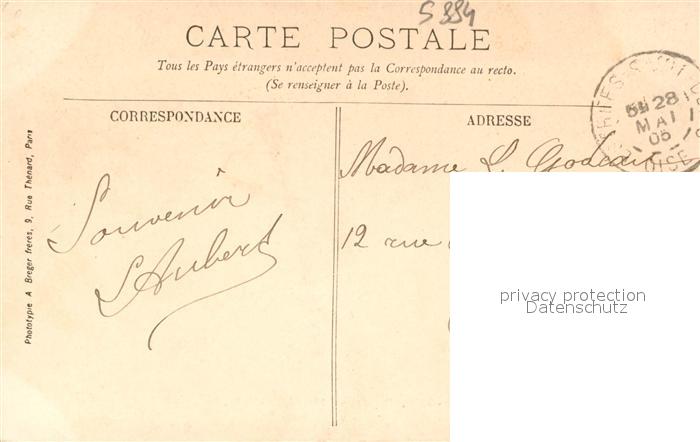 S 334
CARTE POSTALE
Tous les Pays étrangers n'acceptent pas la Correspondance au recto.
(Se renseigner à la Poste).
CORRESPONDANCE
ADRESSE
28
MAI
05
OISE
Madame L.
12 rue
Souvenir
L Aubert
privacy protection
Datenschutz
Phototypie A Breger frères, 9, Rue Thénard, Paris